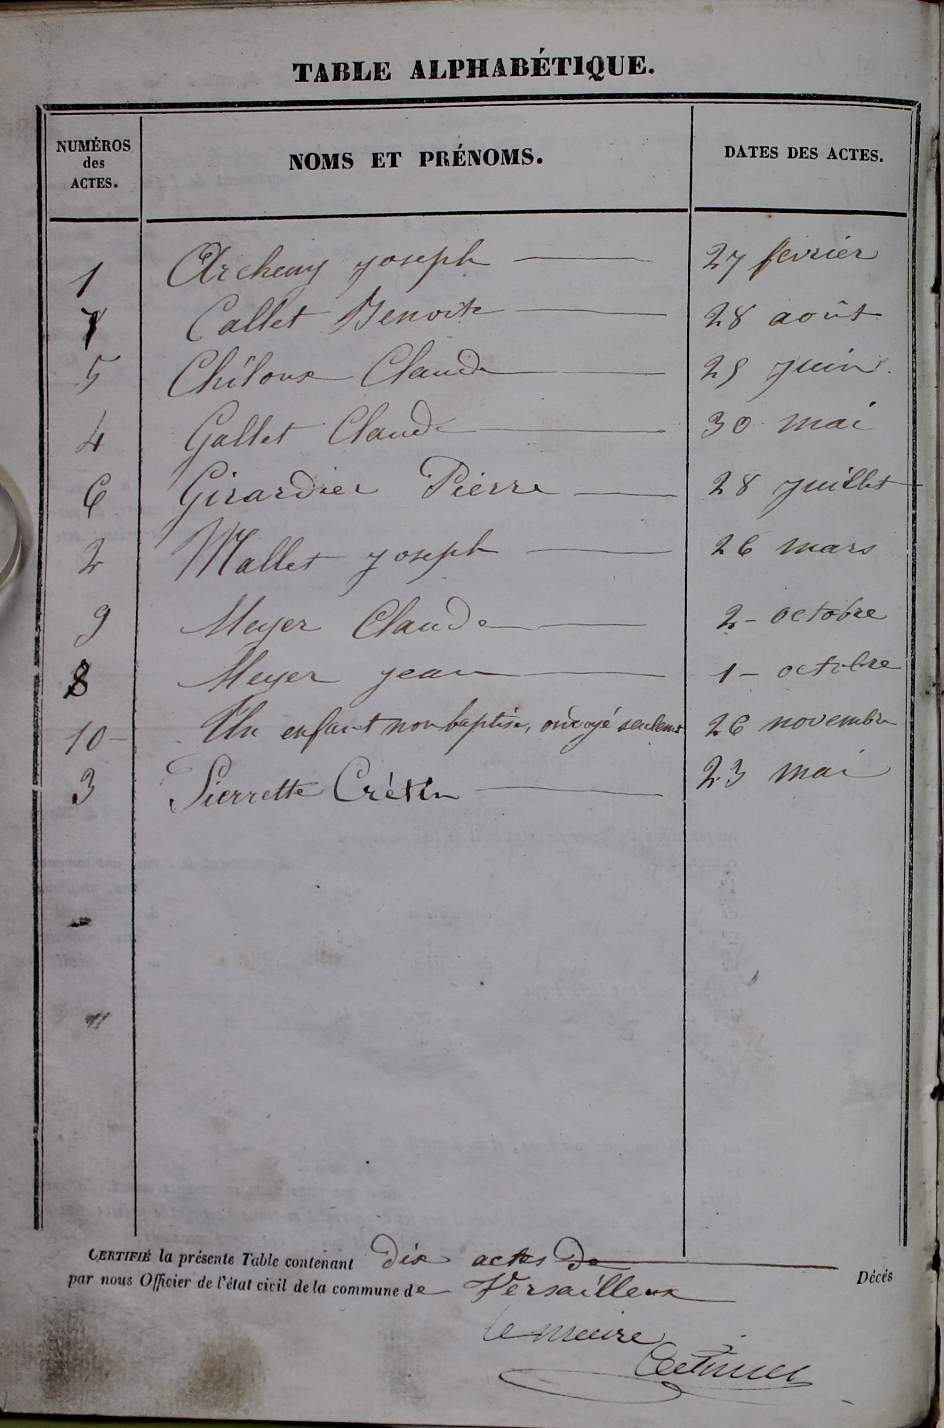 TABLE ALPHABÉTIQUE.
NUMÉROS des ACTES. NOMS ET PRÉNOMS. DATES DES ACTES.
1 Archeny Joseph 27 fevrier
7 Callet Benoite 28 août
5 Chiloux Claude 25 juin
4 Gallet Claude 30 mai
6 Girardier Pierre 28 juillet
2 Mallet Joseph 26 mars
9 Meyer Claude 2 - octobre
8 Meyer jean 1 - octobre
10 - Un enfant non baptisé, seulemt 26 novembre
3 Pierrette Crétin 23 mai
CERTIFIÉ la présente Table contenant dix actes De Décés
par nous Officier de l'état civil de la commune de Versailleux
le maire